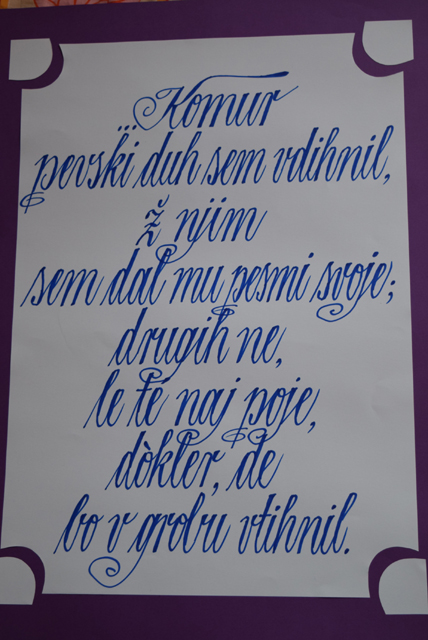 Komur
pevski duh sem vdihnil,
ž njim
sem dal mu pesmi svoje;
drugih ne,
le té naj poje,
dòkler, de
bo v grobu vtihnil.